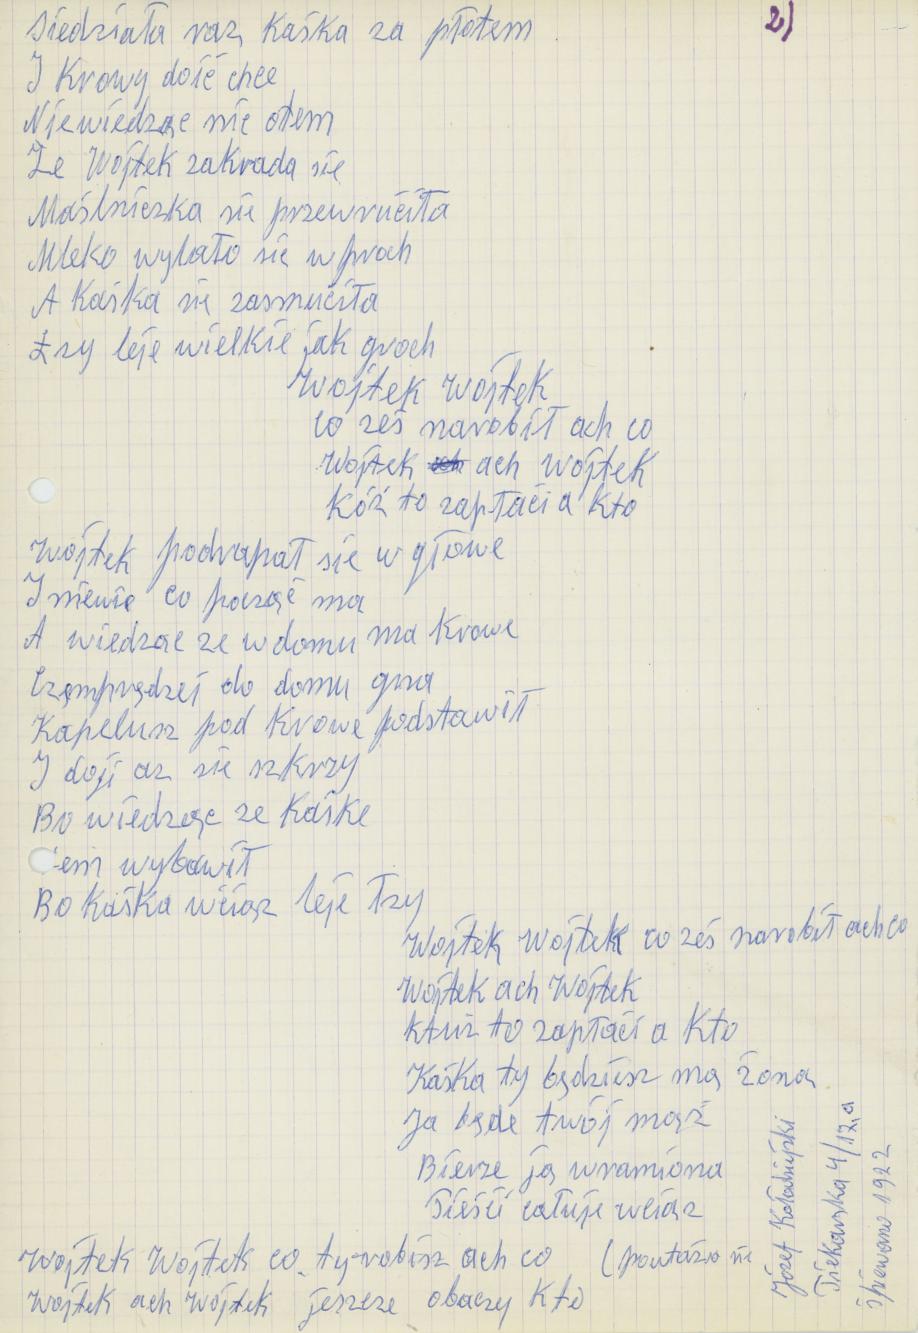 2)
Siedziała raz Kaśka za płotem
I Krowy doić chce
Niewiedząc nic otem
Ze Wojtek zakrada sie
Maślniczka sie przewruciła
Mleko wylało się w proch
A Kaśka sie zasmuciła
Łzy leje wielkie jak groch
Wojtek Wojtek
co ześ narobił ach co
Wojtek ach Wojtek
Kóż to zapłaci a Kto
Wojtek podrapał sie w głowe
I niewie co począć ma
A wiedząc ze w domu ma Krowe
Czemprędzej do domu gna
Kapelusz pod Krowe podstawił
I doji az sie szkrzy
Bo wiedząc ze Kaśke
tem wybawił
Bo Kaśka wciąsz leje łzy
Wojtek Wojtek co ześ narobił ach co
Wojtek ach Wojtek
ktuż to zapłaci a Kto
Kaśka ty będziesz mą żoną
Ja będe twój mąż
Bierze ją wramiona
Pieści całuje wciąz
Wojtek Wojtek co ty robisz ach co (powtarza sie
Wojtek ach Wojtek jeszcze obaczy Kto
Józef
4/12a
śpiewano 1922